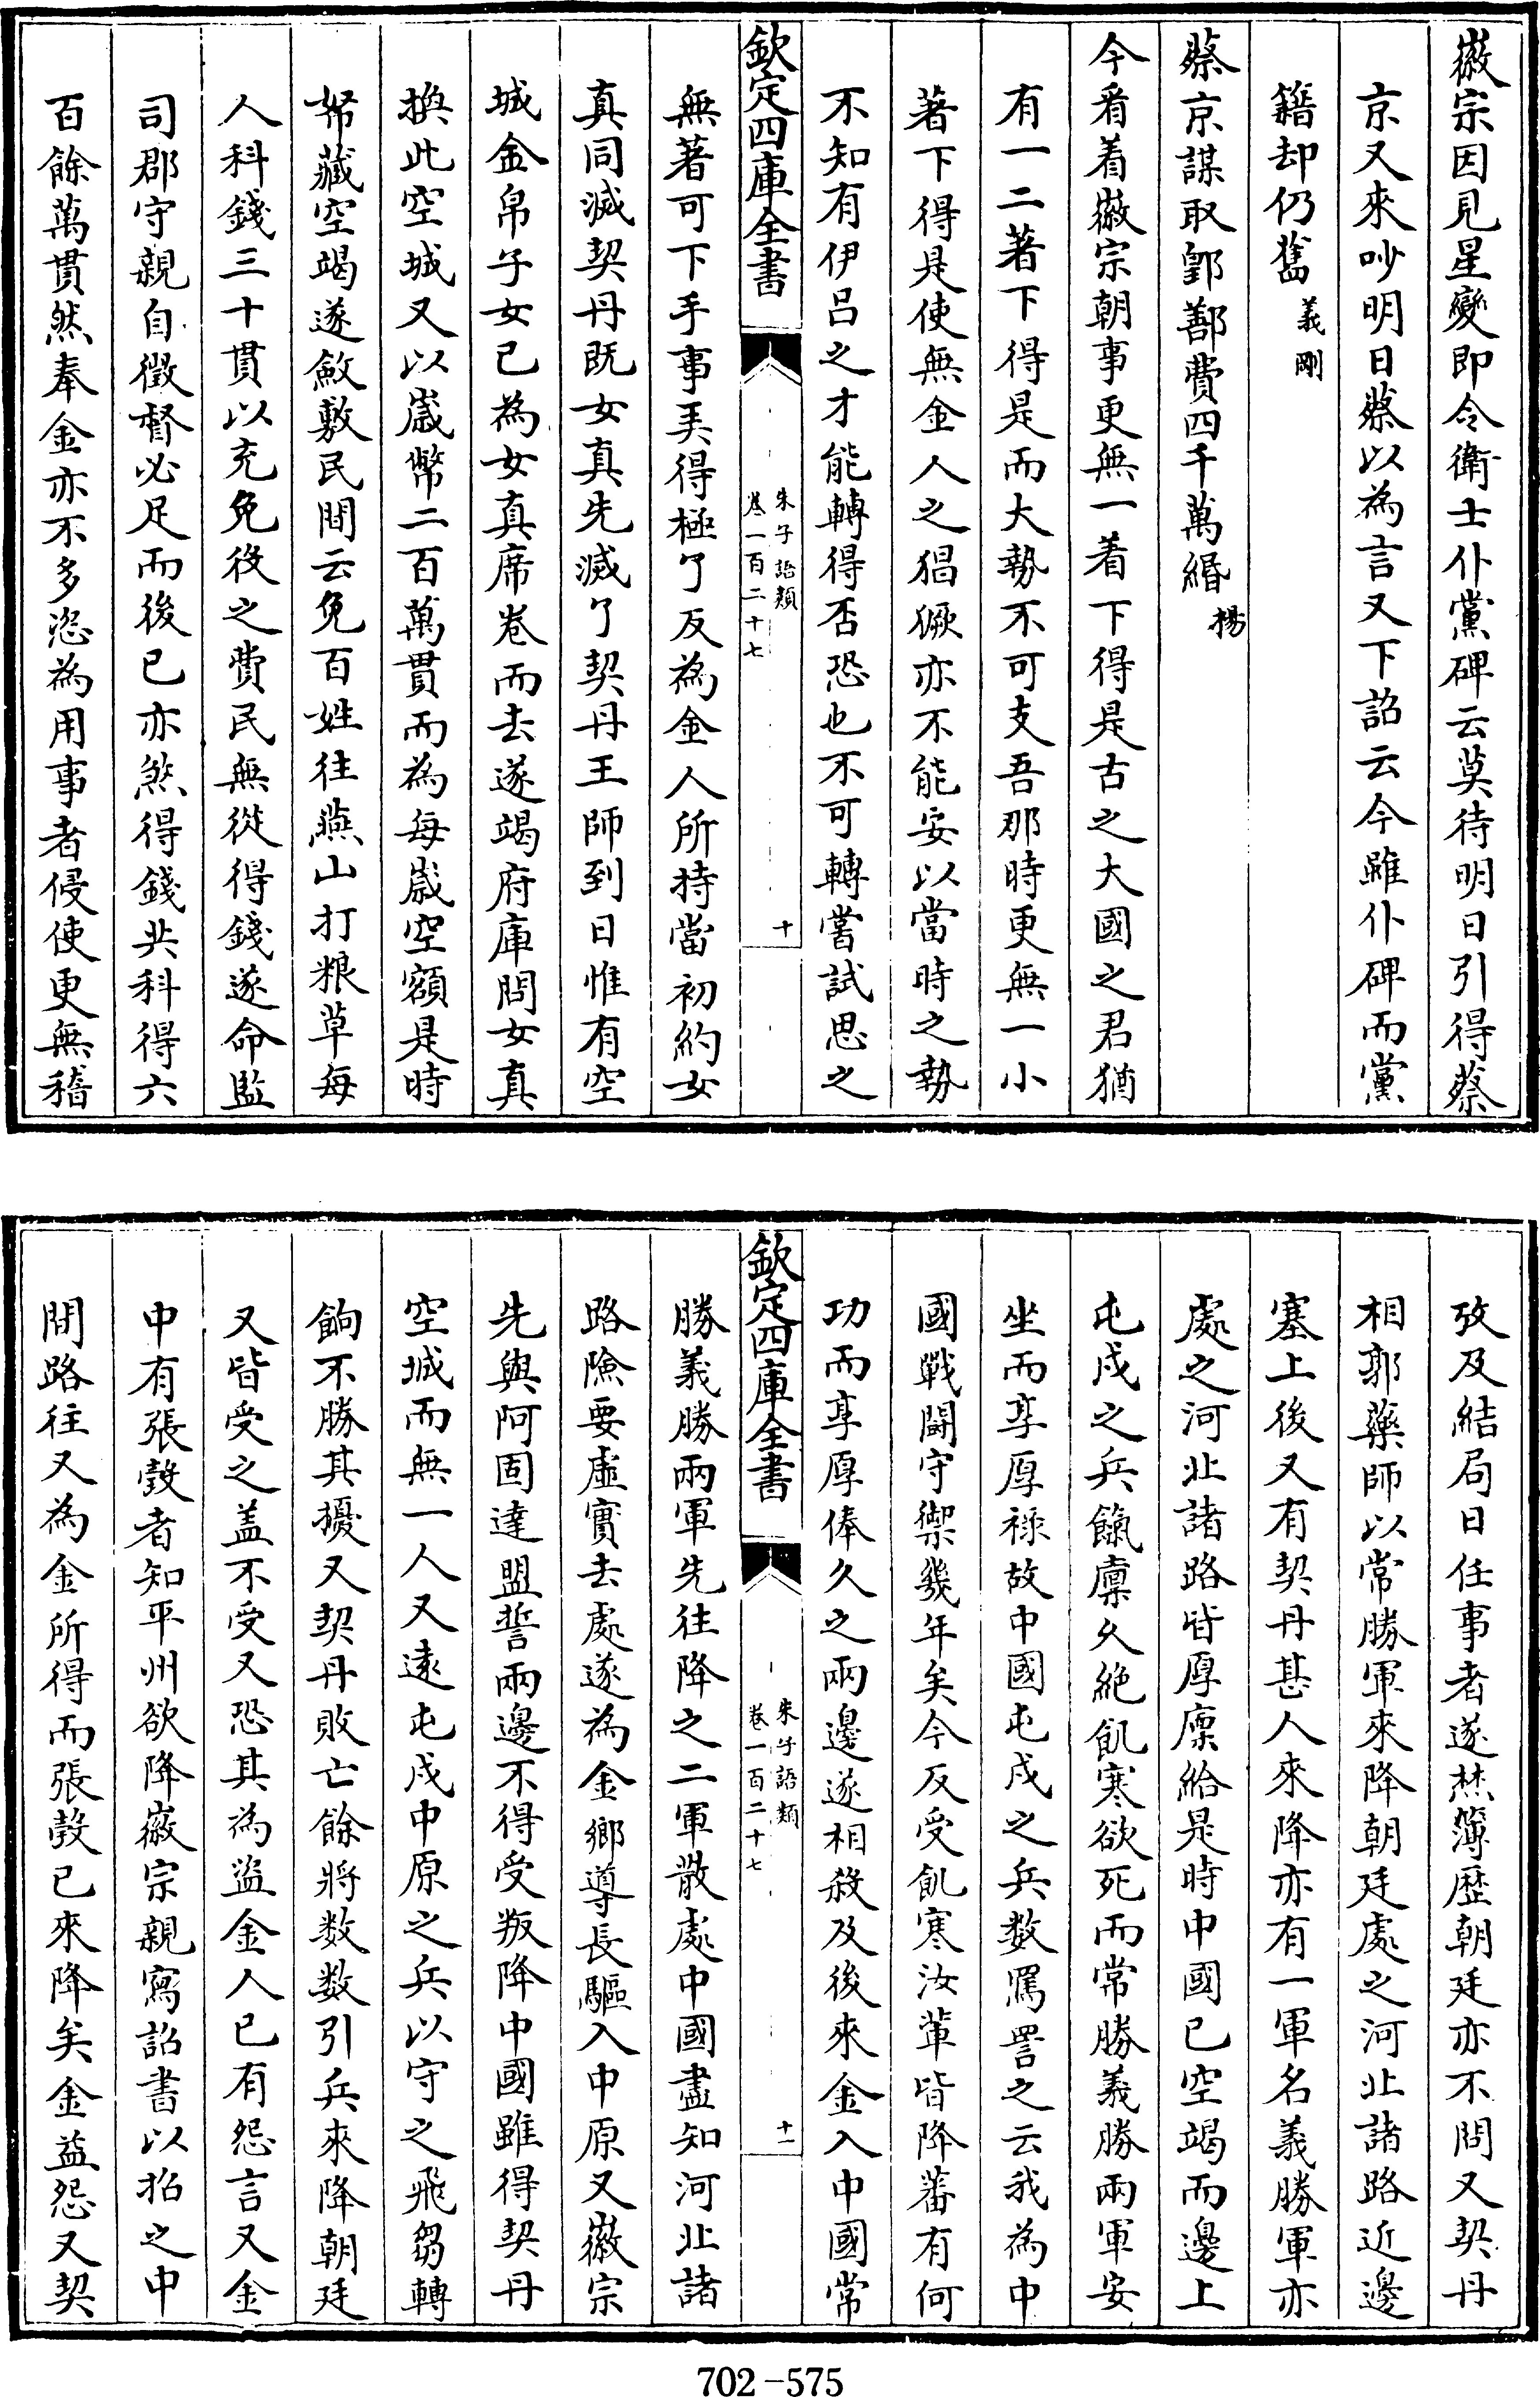 徽宗因見星變即令衛士仆黨碑云莫待明日引得蔡
京又來吵明日蔡以為言又下詔云今雖仆碑而黨
籍却仍舊義剛
蔡京謀取鄞鄯費四千萬緡揚
今看着徽宗朝事更無一着下得是古之大國之君猶
有一二著下得是而大勢不可支吾那時更無一小
著下得是使無金人之猖獗亦不能安以當時之勢
不知有伊呂之才能轉得否恐也不可轉嘗試思之
欽定四庫全書
朱子語類
卷一百二十七
十
無著可下手事弄得極了反為金人所持當初約女
真同滅契丹既女真先滅了契丹王師到日惟有空
城金帛子女已為女真席卷而去遂竭府庫問女真
換此空城又以歲幣二百萬貫而為每歲空額是時
帑藏空竭遂斂敷民間云免百姓往燕山打粮草每
人科錢三十貫以充免役之費民無從得錢遂命監
司郡守親自徵督必足而後已亦煞得錢共科得六
百餘萬貫然奉金亦不多恣為用事者侵使更無稽
攷及結局日任事者遂焚簿歷朝廷亦不問又契丹
相郭藥師以常勝軍來降朝廷處之河北諸路近邊
塞上後又有契丹甚人來降亦有一軍名義勝軍亦
處之河北諸路皆厚廩給是時中國已空竭而邊上
屯戍之兵餼廩久絶飢寒欲死而常勝義勝兩軍安
坐而享厚祿故中國屯戍之兵数罵詈之云我為中
國戰鬬守禦幾年矣今反受飢寒汝輩皆降蕃有何
功而享厚俸久之兩邊遂相殺及後來金入中國常
欽定四庫全書
朱子語類
卷一百二十七
十一
勝義勝兩軍先往降之二軍散處中國盡知河北諸
路險要虛實去處遂為金鄉導長驅入中原又徽宗
先與阿固達盟誓兩邊不得受叛降中國雖得契丹
空城而無一人又遠屯戍中原之兵以守之飛芻轉
餉不勝其擾又契丹敗亡餘將数数引兵來降朝廷
又皆受之盖不受又恐其為盜金人已有怨言又金
中有張瑴者知平州欲降徽宗親寫詔書以招之中
間路往又為金所得而張瑴已來降矣金益怨又契
702-575